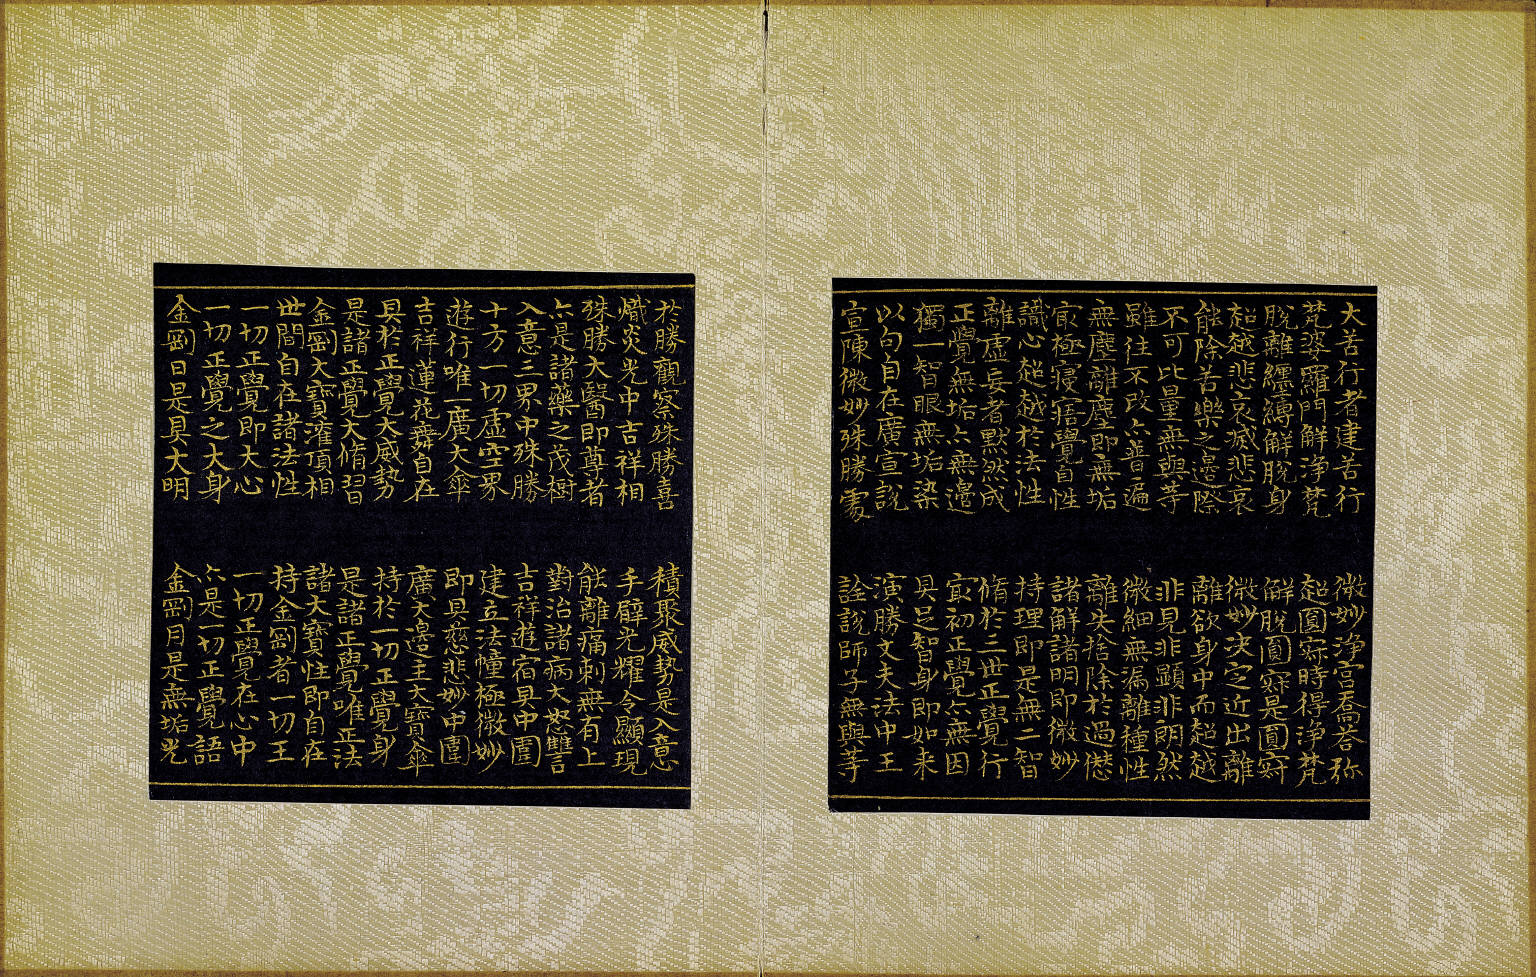 大苦行者建苦行　微妙淨宮喬荅弥
梵婆羅門解淨梵　超圓寂時得淨梵
脫離纏縛解脫身　解脫圓寂是圓寂
超越悲哀滅悲哀　微妙决之近出離
能除苦樂之邊際　離欲身中而超越
不可比量無與等　非見非顯非朗然
雖往不改亦普遍　微細無漏離種性
無塵離塵即無垢　離失捨除於過愆
㝡極寢寤覺自性　諸解諸明即微妙
識心超越於法性　持理即是無二智
離虛妄者默然成　脩於三世正覺行
正覺無垢亦無邊　㝡初正覺亦無因
獨一智眼無垢染　具足智身即如来
以句自在廣宣說　演勝丈夫法中王
宣陳微妙殊勝處　詮說師子無與等
於勝觀察殊勝喜　積聚威勢是入意
熾炎光中吉祥相　手臂光耀令顯現
殊勝大醫即尊者　能離痛刺無有上
亦是諸藥之茂樹　對治諸病大怨讎
入意三界中殊勝　吉祥遊宿具中圍
十方一切虛空界　建立法幢極微妙
遊行唯一廣大傘　即具慈悲妙中圍
吉祥蓮花舞自在　廣大邊主大寶傘
具於正覺大威勢　持於一切正覺身
是諸正覺大脩習　是諸正覺唯正法
金剛大寶灌頂相　諸大寶性即自在
世間自在諸法性　持金剛者一切王
一切正覺即大心　一切正覺在心中
一切正覺之大身　亦是一切正覺語
金剛日是具大明　金剛月是無垢光